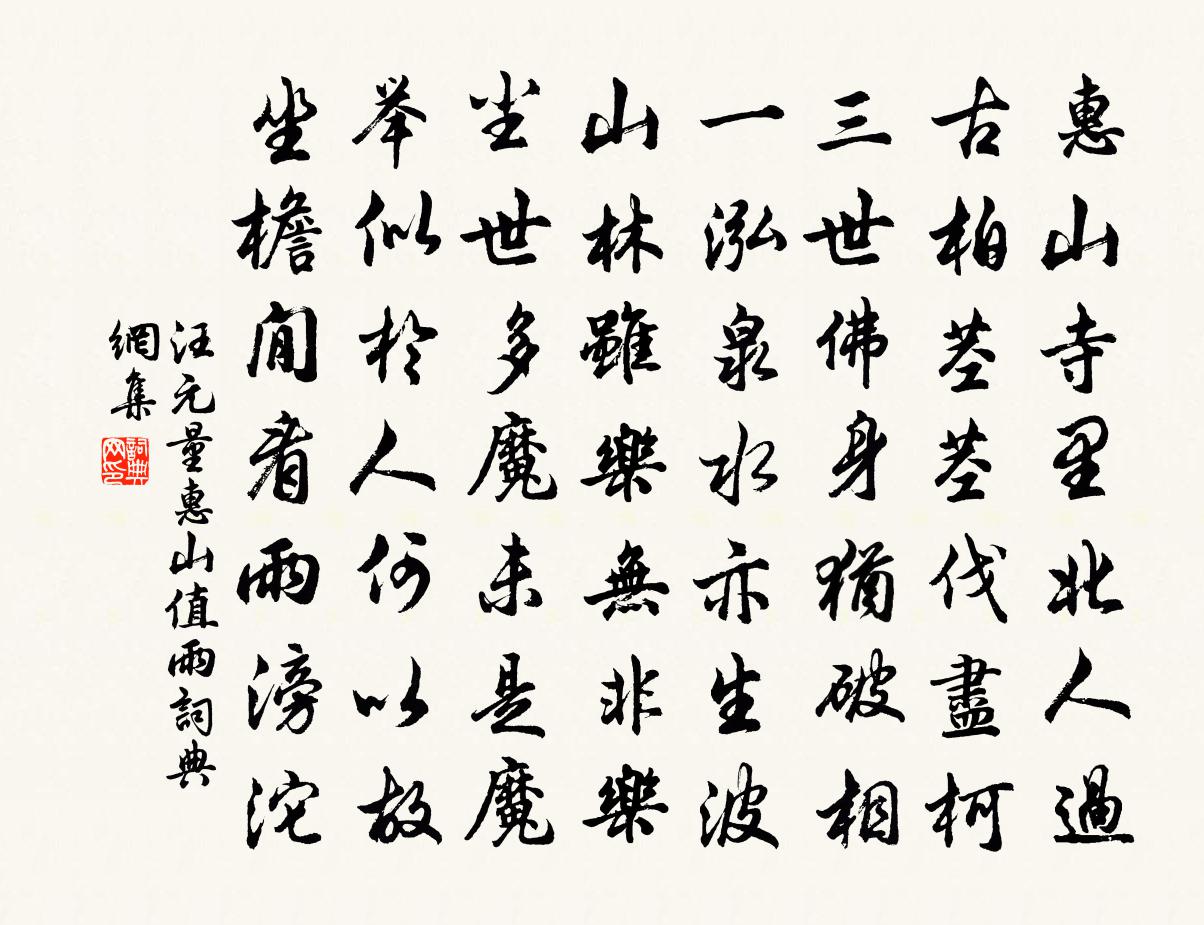 惠山寺里北人過
古柏茎茎伐盡柯
三世佛身猶破相
一泓泉水亦生波
山林雖樂無非樂
尘世多魔未是魔
举似於人何以故
坐檐閒看雨滂沱
汪元量惠山值雨詞典
網集
詞典
网印